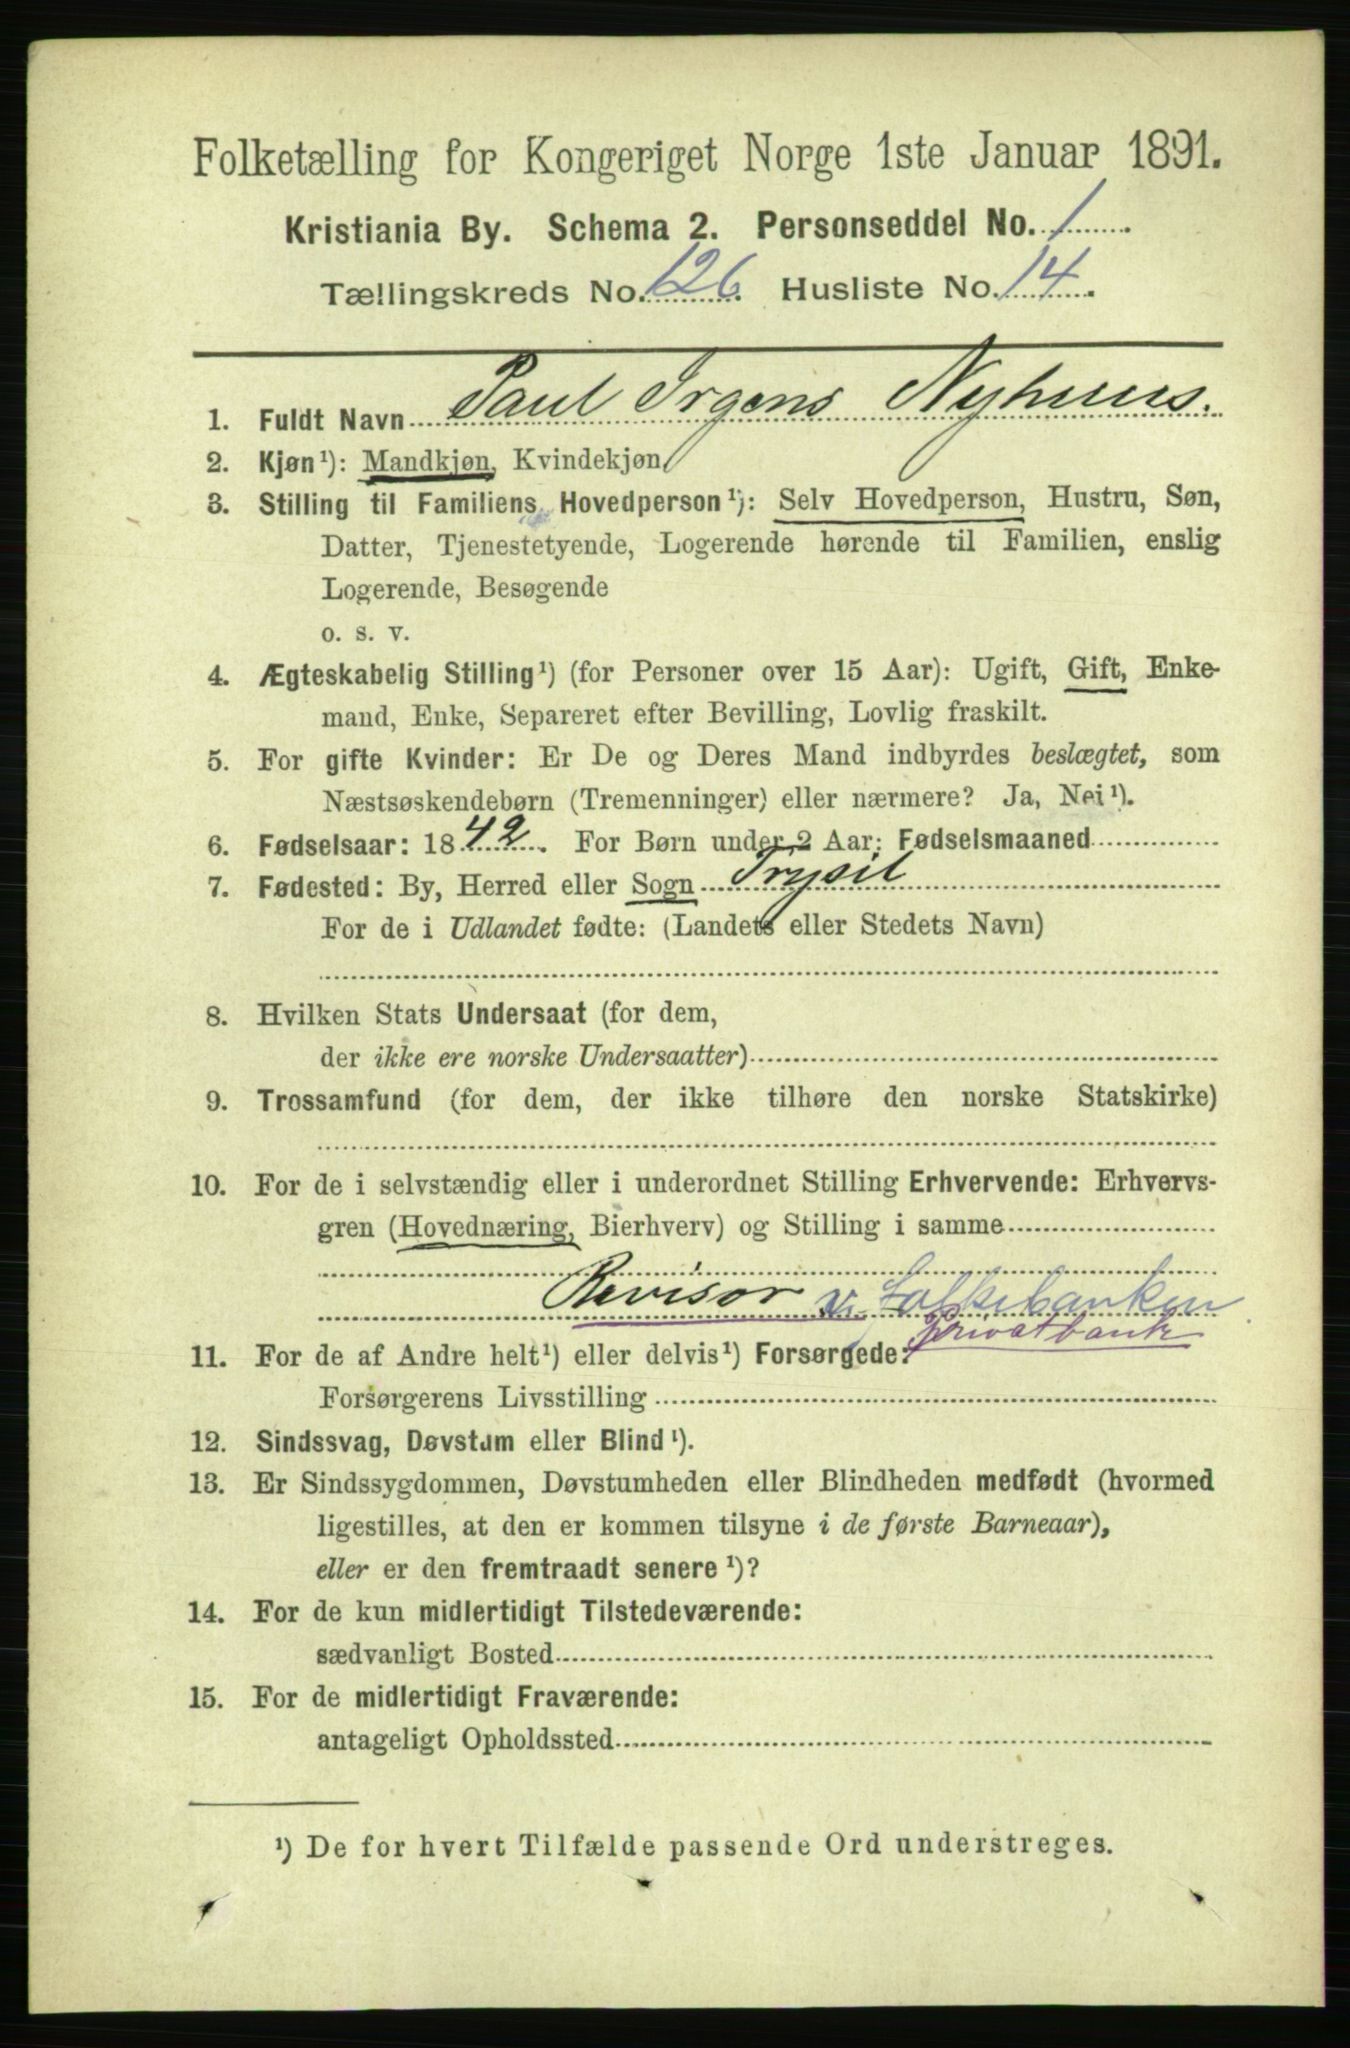 Folketælling for Kongeriget Norge 1ste Januar 1891.
Kristiania By. Schema 2. Personseddel No. 1.
Tællingskreds No. 126. Husliste No. 14.
1. Fuldt Navn Paul Irgens Nyhuus.
2. Kjøn¹): Mandkjøn, Kvindekjøn
3. Stilling til Familiens Hovedperson¹): Selv Hovedperson, Hustru, Søn,
Datter, Tjenestetyende, Logerende hørende til Familien, enslig
Logerende, Besøgende
o. s. v.
4. Ægteskabelig Stilling¹) (for Personer over 15 Aar): Ugift, Gift, Enke-
mand, Enke, Separeret efter Bevilling, Lovlig fraskilt.
5. For gifte Kvinder: Er De og Deres Mand indbyrdes beslægtet, som
Næstsøskendebørn (Tremenninger) eller nærmere? Ja, Nei¹).
6. Fødselsaar: 1842. For Børn under 2 Aar: Fødselsmaaned
7. Fødested: By, Herred eller Sogn Trysil
For de i Udlandet fødte: (Landets eller Stedets Navn)
8. Hvilken Stats Undersaat (for dem,
der ikke ere norske Undersaatter)
9. Trossamfund (for dem, der ikke tilhøre den norske Statskirke)
10. For de i selvstændig eller i underordnet Stilling Erhvervende: Erhvervs-
gren (Hovednæring, Bierhverv) og Stilling i samme
Revisor v. Folkebanken
Privatbank
11. For de af Andre helt¹) eller delvis¹) Forsørgede:
Forsørgerens Livsstilling
12. Sindssvag, Døvstum eller Blind¹).
13. Er Sindssygdommen, Døvstumheden eller Blindheden medfødt (hvormed
ligestilles, at den er kommen tilsyne i de første Barneaar),
eller er den fremtraadt senere¹)?
14. For de kun midlertidigt Tilstedeværende:
sædvanligt Bosted
15. For de midlertidigt Fraværende:
antageligt Opholdssted
¹) De for hvert Tilfælde passende Ord understreges.